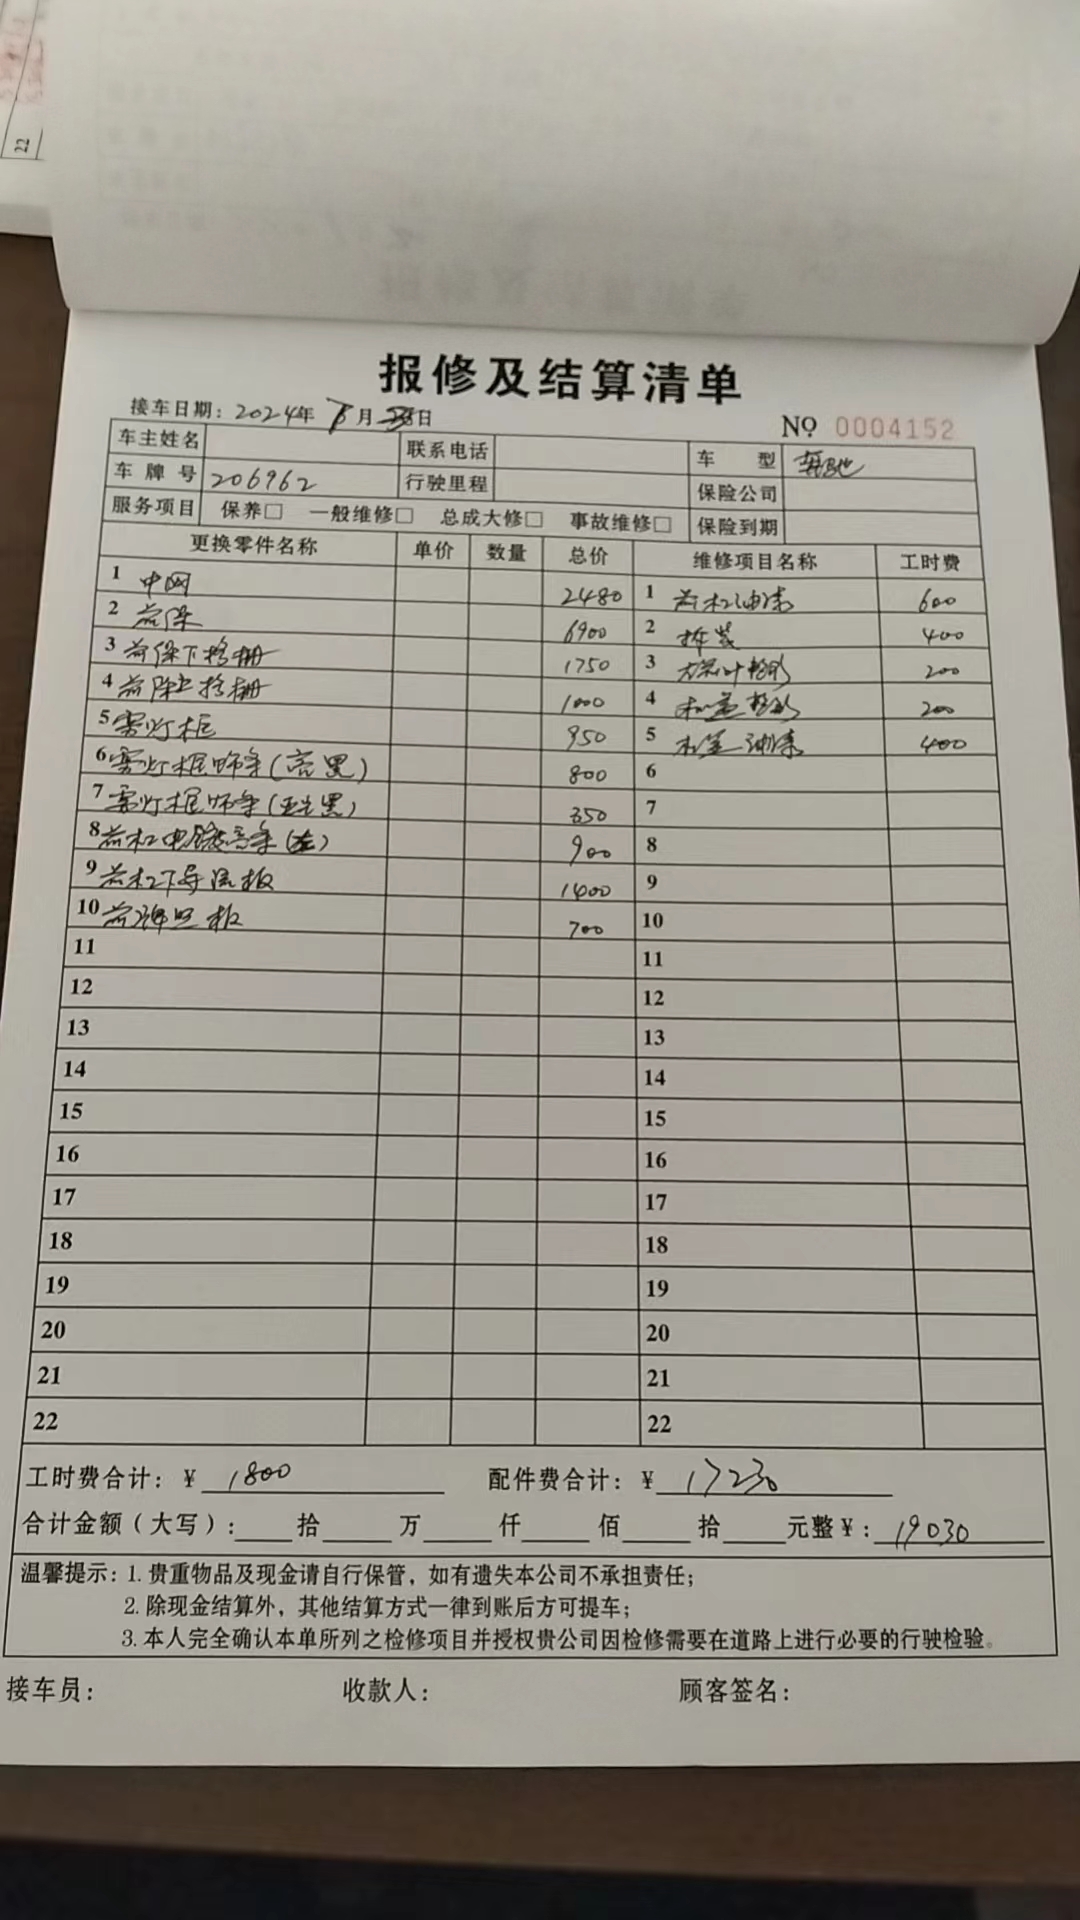 22
报修及结算清单
接车日期：2024年8月28日
NO 0004152
车主姓名 联系电话 车型 奔驰
车牌号 206962 行驶里程 保险公司
服务项目 保养□ 一般维修□ 总成大修□ 事故维修□ 保险到期
更换零件名称 单价 数量 总价 维修项目名称 工时费
1 中网 2480 1 前杠油漆 600
2 前保 6900 2 拆装 400
3 前保下格栅 1750 3 200
4 前保上格栅 1000 4 200
5 雾灯框 950 5 油漆 400
6 雾灯框饰条(高黑) 800 6
7 雾灯框饰条(亚光黑) 350 7
8 前杠电镀亮条(左) 900 8
9 前杠下导流板 1400 9
10 前牌照板 700 10
11 11
12 12
13 13
14 14
15 15
16 16
17 17
18 18
19 19
20 20
21 21
22 22
工时费合计：￥1800 配件费合计：￥17230
合计金额（大写）：拾 万 仟 佰 拾 元整￥：19030
温馨提示：1.贵重物品及现金请自行保管，如有遗失本公司不承担责任；
2.除现金结算外，其他结算方式一律到账后方可提车；
3.本人完全确认本单所列之检修项目并授权贵公司因检修需要在道路上进行必要的行驶检验。
接车员： 收款人： 顾客签名：